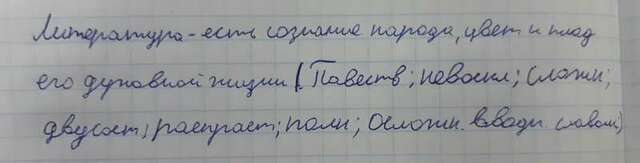 Литература - есть сознание народа, цвет и плод
его духовной жизни (Повеств; невоскл; сложн;
двусост; распрост; полн; Осложн. вводн. словом)